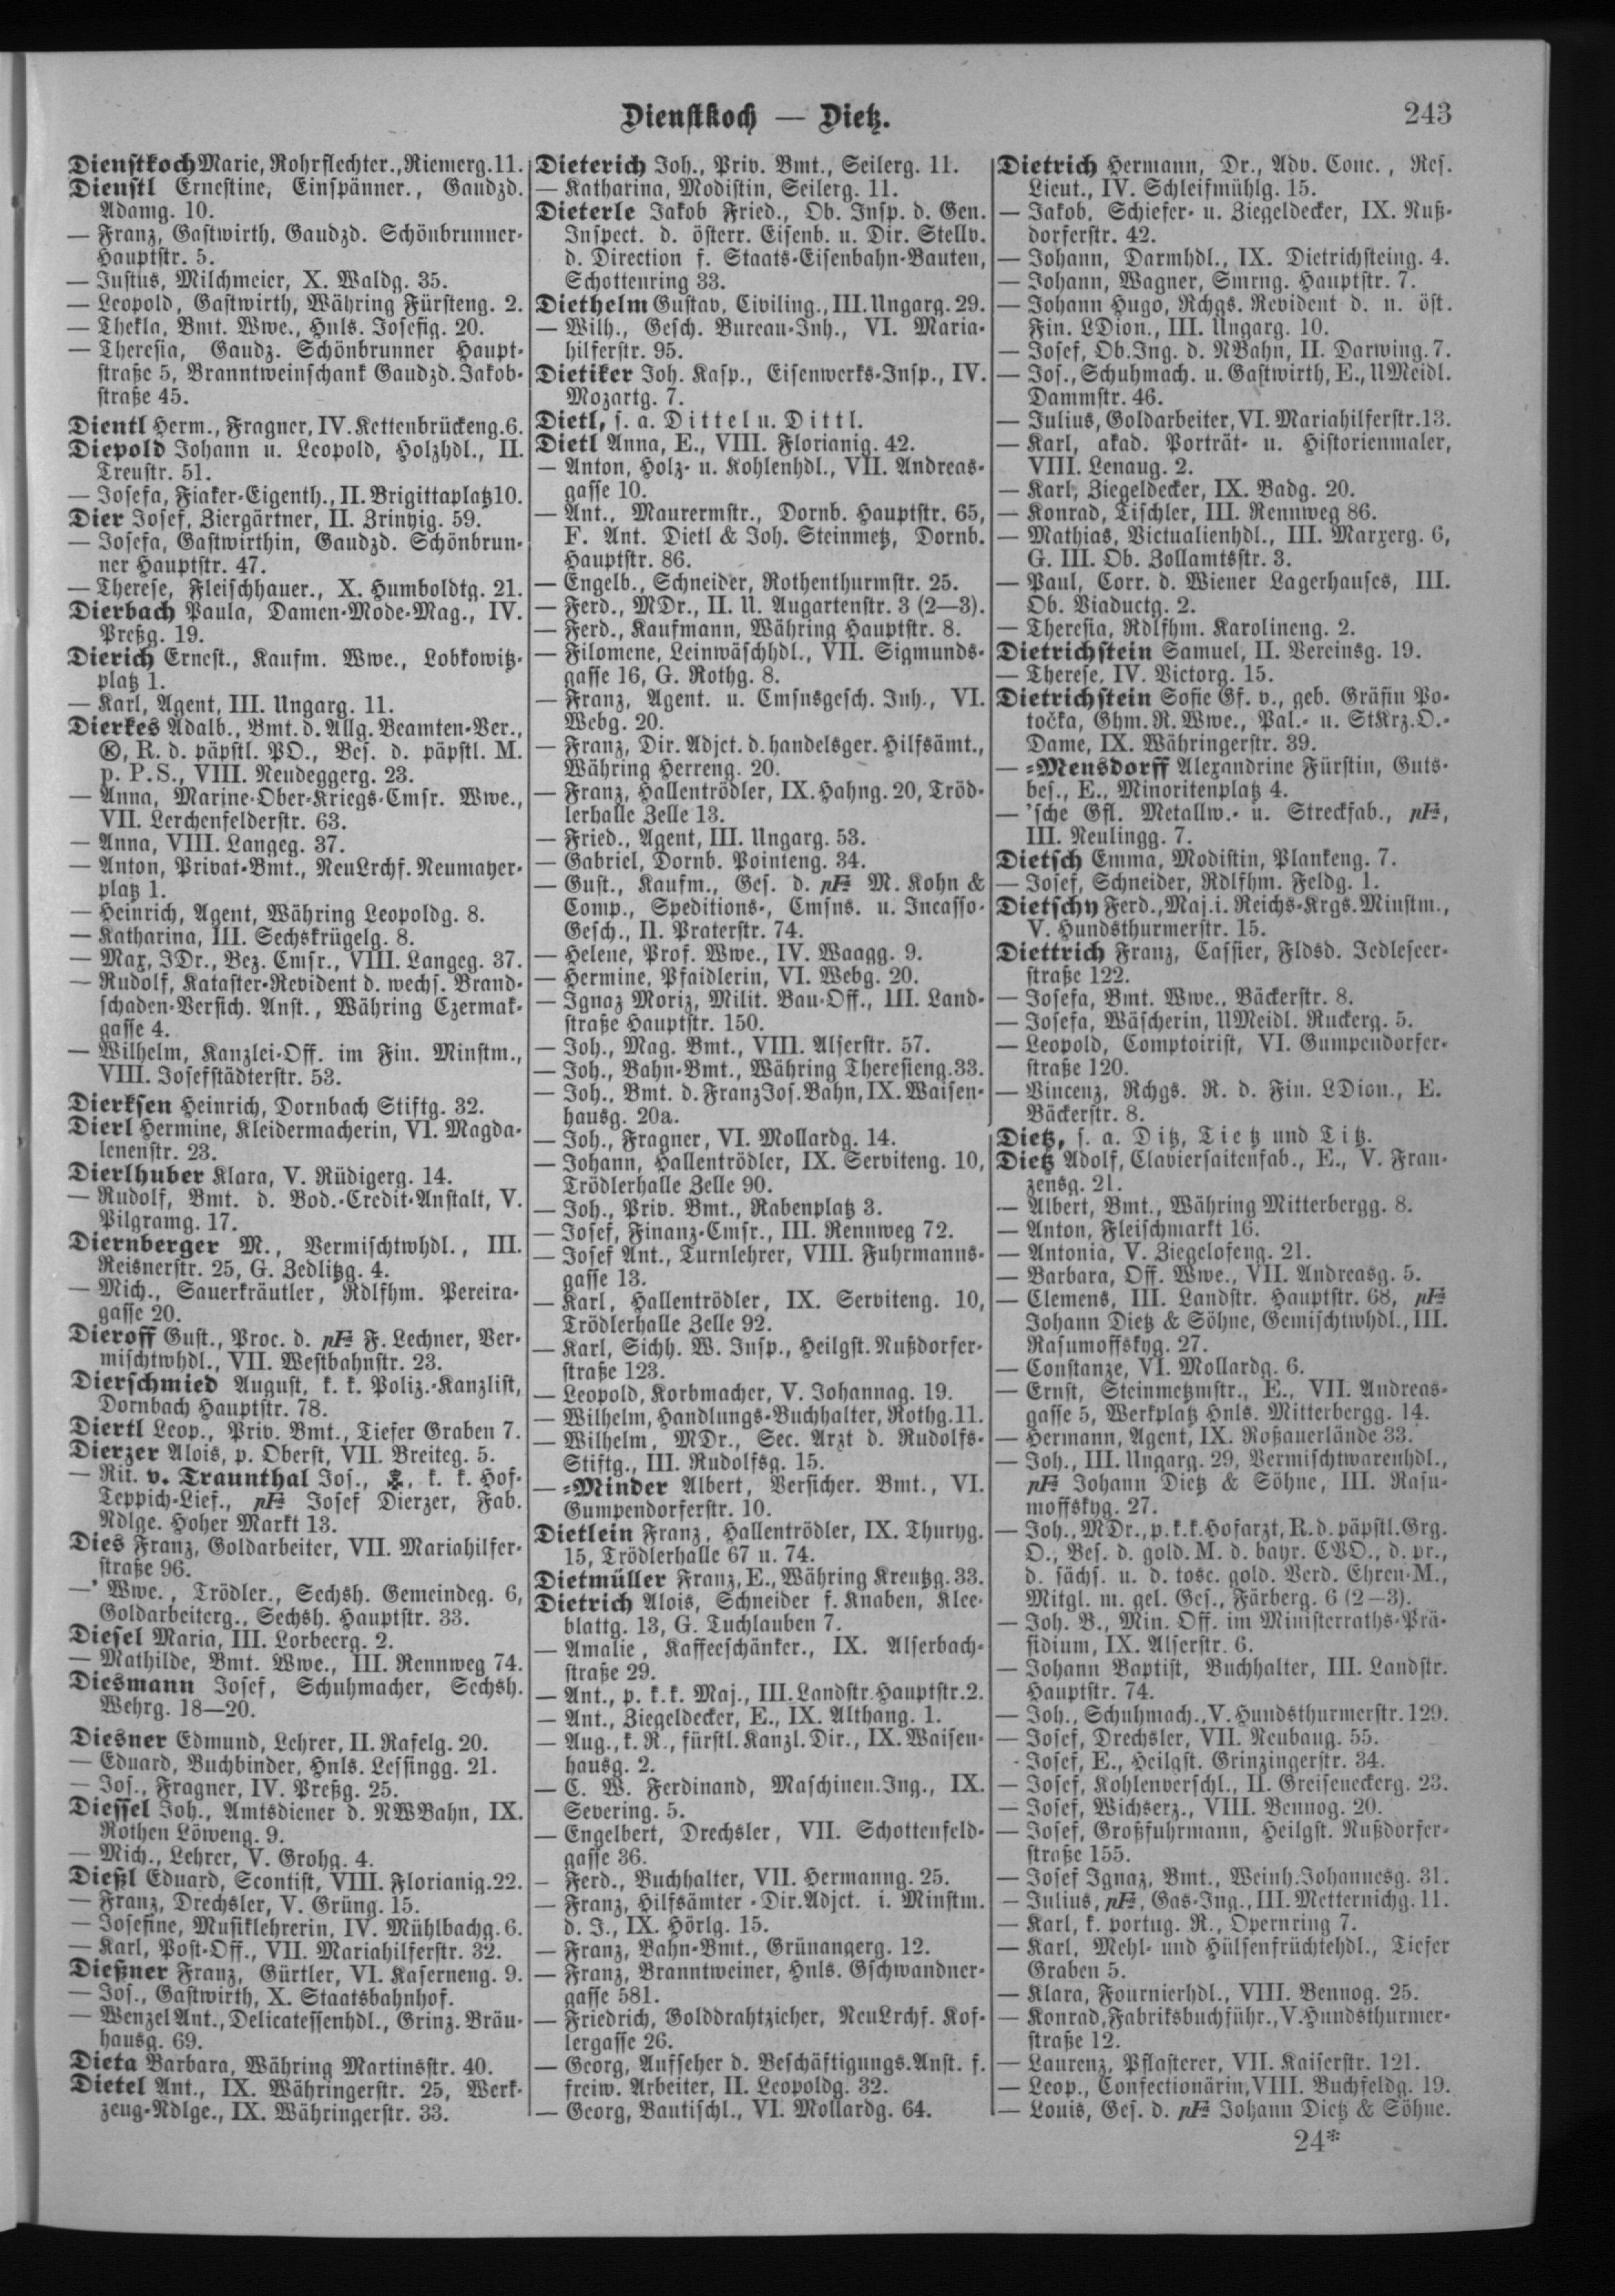 Dienstkoch — Dietz.
243
Dienstkoch Marie, Rohrflechter., Riemerg. 11.
Dienstl Ernestine, Einspänner., Gaudzd.
Adamg. 10.
— Franz, Gastwirth, Gaudzd. Schönbrunner-
Hauptstr. 5.
— Justus, Milchmeier, X. Waldg. 35.
— Leopold, Gastwirth, Währing Fürsteng. 2.
— Thekla, Bmt. Wwe., Hnls. Josefig. 20.
— Theresia, Gaudz. Schönbrunner Haupt-
straße 5, Branntweinschank Gaudzd. Jakob-
straße 45.
Dientl Herm., Fragner, IV. Kettenbrückeng. 6.
Diepold Johann u. Leopold, Holzhdl., II.
Treustr. 51.
— Josefa, Fiaker-Eigenth., II. Brigittaplatz 10.
Dier Josef, Ziergärtner, II. Zrinyig. 59.
— Josefa, Gastwirthin, Gaudzd. Schönbrun-
ner Hauptstr. 47.
— Therese, Fleischhauer., X. Humboldtg. 21.
Dierbach Paula, Damen-Mode-Mag., IV.
Preßg. 19.
Dierich Ernest., Kaufm. Wwe., Lobkowitz-
platz 1.
— Karl, Agent, III. Ungarg. 11.
Dierkes Adalb., Bmt. d. Allg. Beamten-Ver.,
Ⓚ, R. d. päpstl. PO., Bes. d. päpstl. M.
p. P. S., VIII. Neudeggerg. 23.
— Anna, Marine-Ober-Kriegs-Cmsr. Wwe.,
VII. Lerchenfelderstr. 63.
— Anna, VIII. Langeg. 37.
— Anton, Privat-Bmt., NeuLrchf. Neumayer-
platz 1.
— Heinrich, Agent, Währing Leopoldg. 8.
— Katharina, III. Sechskrügelg. 8.
— Max, JDr., Bez. Cmsr., VIII. Langeg. 37.
— Rudolf, Kataster-Revident d. wechs. Brand-
schaden-Versich. Anst., Währing Czermak-
gasse 4.
— Wilhelm, Kanzlei-Off. im Fin. Minstm.,
VIII. Josefstädterstr. 53.
Dierksen Heinrich, Dornbach Stiftg. 32.
Dierl Hermine, Kleidermacherin, VI. Magda-
lenenstr. 23.
Dierlhuber Klara, V. Rüdigerg. 14.
— Rudolf, Bmt. d. Bod.-Credit-Anstalt, V.
Pilgramg. 17.
Diernberger M., Vermischtwhdl., III.
Reisnerstr. 25, G. Zedlitzg. 4.
— Mich., Sauerkräutler, Rdlfhm. Pereira-
gasse 20.
Dieroff Gust., Proc. d. pFa F. Lechner, Ver-
mischtwhdl., VII. Westbahnstr. 23.
Dierschmied August, k. k. Poliz.-Kanzlist,
Dornbach Hauptstr. 78.
Diertl Leop., Priv. Bmt., Tiefer Graben 7.
Dierzer Alois, p. Oberst, VII. Breiteg. 5.
— Rit. v. Traunthal Jos., k. k. Hof-
Teppich-Lief., pFa Josef Dierzer, Fab.
Ndlge. Hoher Markt 13.
Dies Franz, Goldarbeiter, VII. Mariahilfer-
straße 96.
—' Wwe., Trödler., Sechsh. Gemeindeg. 6,
Goldarbeiterg., Sechsh. Hauptstr. 33.
Diesel Maria, III. Lorbeerg. 2.
— Mathilde, Bmt. Wwe., III. Rennweg 74.
Diesmann Josef, Schuhmacher, Sechsh.
Wehrg. 18—20.
Diesner Edmund, Lehrer, II. Rafelg. 20.
— Eduard, Buchbinder, Hnls. Lessingg. 21.
— Jos., Fragner, IV. Preßg. 25.
Diessel Joh., Amtsdiener d. NWBahn, IX.
Rothen Löweng. 9.
— Mich., Lehrer, V. Grohg. 4.
Dießl Eduard, Scontist, VIII. Florianig. 22.
— Franz, Drechsler, V. Grüng. 15.
— Josefine, Musiklehrerin, IV. Mühlbachg. 6.
— Karl, Post-Off., VII. Mariahilferstr. 32.
Dießner Franz, Gürtler, VI. Kaserneng. 9.
— Jos., Gastwirth, X. Staatsbahnhof.
— Wenzel Ant., Delicatessenhdl., Grinz. Bräu-
hausg. 69.
Dieta Barbara, Währing Martinsstr. 40.
Dietel Ant., IX. Währingerstr. 25, Werk-
zeug-Ndlge., IX. Währingerstr. 33.
Dieterich Joh., Priv. Bmt., Seilerg. 11.
— Katharina, Modistin, Seilerg. 11.
Dieterle Jakob Fried., Ob. Insp. d. Gen.
Inspect. d. österr. Eisenb. u. Dir. Stellv.
d. Direction f. Staats-Eisenbahn-Bauten,
Schottenring 33.
Diethelm Gustav, Civiling., III. Ungarg. 29.
— Wilh., Gesch. Bureau-Inh., VI. Maria-
hilferstr. 95.
Dietiker Joh. Kasp., Eisenwerks-Insp., IV.
Mozartg. 7.
Dietl, s. a. Dittel u. Dittl.
Dietl Anna, E., VIII. Florianig. 42.
— Anton, Holz- u. Kohlenhdl., VII. Andreas-
gasse 10.
— Ant., Maurermstr., Dornb. Hauptstr. 65,
F. Ant. Dietl & Joh. Steinmetz, Dornb.
Hauptstr. 86.
— Engelb., Schneider, Rothenthurmstr. 25.
— Ferd., MDr., II. U. Augartenstr. 3 (2—3).
— Ferd., Kaufmann, Währing Hauptstr. 8.
— Filomene, Leinwäschhdl., VII. Sigmunds-
gasse 16, G. Rothg. 8.
— Franz, Agent. u. Cmsnsgesch. Inh., VI.
Webg. 20.
— Franz, Dir. Adjct. d. handelsger. Hilfsämt.,
Währing Herreng. 20.
— Franz, Hallentrödler, IX. Hahng. 20, Tröd-
lerhalle Zelle 13.
— Fried., Agent, III. Ungarg. 53.
— Gabriel, Dornb. Pointeng. 34.
— Gust., Kaufm., Ges. d. pFa M. Kohn &
Comp., Speditions-, Cmsns. u. Incasso-
Gesch., II. Praterstr. 74.
— Helene, Prof. Wwe., IV. Waagg. 9.
— Hermine, Pfaidlerin, VI. Webg. 20.
— Ignaz Moriz, Milit. Bau-Off., III. Land-
straße Hauptstr. 150.
— Joh., Mag. Bmt., VIII. Alserstr. 57.
— Joh., Bahn-Bmt., Währing Theresieng. 33.
— Joh., Bmt. d. FranzJos. Bahn, IX. Waisen-
hausg. 20a.
— Joh., Fragner, VI. Mollardg. 14.
— Johann, Hallentrödler, IX. Serviteng. 10,
Trödlerhalle Zelle 90.
— Joh., Priv. Bmt., Rabenplatz 3.
— Josef, Finanz-Cmsr., III. Rennweg 72.
— Josef Ant., Turnlehrer, VIII. Fuhrmanns-
gasse 13.
— Karl, Hallentrödler, IX. Serviteng. 10,
Trödlerhalle Zelle 92.
— Karl, Sichh. W. Insp., Heilgst. Nußdorfer-
straße 123.
— Leopold, Korbmacher, V. Johannag. 19.
— Wilhelm, Handlungs-Buchhalter, Rothg. 11.
— Wilhelm, MDr., Sec. Arzt d. Rudolfs-
Stiftg., III. Rudolfsg. 15.
— -Minder Albert, Versicher. Bmt., VI.
Gumpendorferstr. 10.
Dietlein Franz, Hallentrödler, IX. Thuryg.
15, Trödlerhalle 67 u. 74.
Dietmüller Franz, E., Währing Kreutzg. 33.
Dietrich Alois, Schneider f. Knaben, Klee-
blattg. 13, G. Tuchlauben 7.
— Amalie, Kaffeeschänker., IX. Alserbach-
straße 29.
— Ant., p. k. k. Maj., III. Landstr. Hauptstr. 2.
— Ant., Ziegeldecker, E., IX. Althang. 1.
— Aug., k. R., fürstl. Kanzl. Dir., IX. Waisen-
hausg. 2.
— C. W. Ferdinand, Maschinen. Ing., IX.
Severing. 5.
— Engelbert, Drechsler, VII. Schottenfeld-
gasse 36.
— Ferd., Buchhalter, VII. Hermanng. 25.
— Franz, Hilfsämter-Dir. Adjct. i. Minstm.
d. J., IX. Hörlg. 15.
— Franz, Bahn-Bmt., Grünangerg. 12.
— Franz, Branntweiner, Hnls. Gschwandner-
gasse 581.
— Friedrich, Golddrahtzieher, NeuLrchf. Kof-
lergasse 26.
— Georg, Aufseher d. Beschäftigungs. Anst. f.
freiw. Arbeiter, II. Leopoldg. 32.
— Georg, Bautischl., VI. Mollardg. 64.
Dietrich Hermann, Dr., Adv. Conc., Res.
Lieut., IV. Schleifmühlg. 15.
— Jakob, Schiefer- u. Ziegeldecker, IX. Nuß-
dorferstr. 42.
— Johann, Darmhdl., IX. Dietrichsteing. 4.
— Johann, Wagner, Smrng. Hauptstr. 7.
— Johann Hugo, Rchgs. Revident d. n. öst.
Fin. LDion., III. Ungarg. 10.
— Josef, Ob. Ing. d. NBahn, II. Darwing. 7.
— Jos., Schuhmach. u. Gastwirth, E., UMeidl.
Dammstr. 46.
— Julius, Goldarbeiter, VI. Mariahilferstr. 13.
— Karl, akad. Porträt- u. Historienmaler,
VIII. Lenaug. 2.
— Karl, Ziegeldecker, IX. Badg. 20.
— Konrad, Tischler, III. Rennweg 86.
— Mathias, Victualienhdl., III. Marxerg. 6,
G. III. Ob. Zollamtsstr. 3.
— Paul, Corr. d. Wiener Lagerhauses, III.
Ob. Viaductg. 2.
— Theresia, Rdlfhm. Karolineng. 2.
Dietrichstein Samuel, II. Vereinsg. 19.
— Therese, IV. Victorg. 15.
Dietrichstein Sofie Gf. v., geb. Gräfin Po-
točka, Ghm. R. Wwe., Pal.- u. StKrz. O.-
Dame, IX. Währingerstr. 39.
— -Mensdorff Alexandrine Fürstin, Guts-
bes., E., Minoritenplatz 4.
— 'sche Gfl. Metallw.- u. Streckfab., pFa,
III. Neulingg. 7.
Dietsch Emma, Modistin, Plankeng. 7.
— Josef, Schneider, Rdlfhm. Feldg. 1.
Dietschy Ferd., Maj. i. Reichs-Krgs. Minstm.,
V. Hundsthurmerstr. 15.
Diettrich Franz, Cassier, Fldsd. Jedleseer-
straße 122.
— Josefa, Bmt. Wwe., Bäckerstr. 8.
— Josefa, Wäscherin, UMeidl. Ruckerg. 5.
— Leopold, Comptoirist, VI. Gumpendorfer-
straße 120.
— Vincenz, Rchgs. R. d. Fin. LDion., E.
Bäckerstr. 8.
Dietz, s. a. Ditz, Tietz und Titz.
Dietz Adolf, Claviersaitenfab., E., V. Fran-
zensg. 21.
— Albert, Bmt., Währing Mitterbergg. 8.
— Anton, Fleischmarkt 16.
— Antonia, V. Ziegelofeng. 21.
— Barbara, Off. Wwe., VII. Andreasg. 5.
— Clemens, III. Landstr. Hauptstr. 68, pFa
Johann Dietz & Söhne, Gemischtwhdl., III.
Rasumoffskyg. 27.
— Constanze, VI. Mollardg. 6.
— Ernst, Steinmetzmstr., E., VII. Andreas-
gasse 5, Werkplatz Hnls. Mitterbergg. 14.
— Hermann, Agent, IX. Roßauerlände 33.
— Joh., III. Ungarg. 29, Vermischtwarenhdl.,
pFa Johann Dietz & Söhne, III. Rasu-
moffskyg. 27.
— Joh., MDr., p. k. k. Hofarzt, R. d. päpstl. Grg.
O., Bes. d. gold. M. d. bayr. CVO., d. pr.,
d. sächs. u. d. tosc. gold. Verd. Ehren-M.,
Mitgl. m. gel. Ges., Färberg. 6 (2—3).
— Joh. B., Min. Off. im Ministerraths-Prä-
sidium, IX. Alserstr. 6.
— Johann Baptist, Buchhalter, III. Landstr.
Hauptstr. 74.
— Joh., Schuhmach., V. Hundsthurmerstr. 129.
— Josef, Drechsler, VII. Neubaug. 55.
- Josef, E., Heilgst. Grinzingerstr. 34.
— Josef, Kohlenverschl., II. Greiseneckerg. 23.
— Josef, Wichserz., VIII. Bennog. 20.
— Josef, Großfuhrmann, Heilgst. Nußdorfer-
straße 155.
— Josef Ignaz, Bmt., Weinh. Johannesg. 31.
— Julius, pFa, Gas-Ing., III. Metternichg. 11.
— Karl, k. portug. R., Opernring 7.
— Karl, Mehl- und Hülsenfrüchtehdl., Tiefer
Graben 5.
— Klara, Fournierhdl., VIII. Bennog. 25.
— Konrad, Fabriksbuchführ., V. Hundsthurmer-
straße 12.
— Laurenz, Pflasterer, VII. Kaiserstr. 121.
— Leop., Confectionärin, VIII. Buchfeldg. 19.
— Louis, Ges. d. pFa Johann Dietz & Söhne.
24*